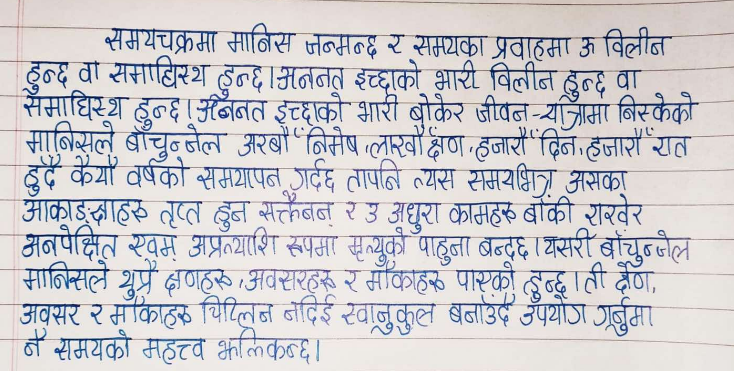 समयचक्रमा मानिस जन्मन्छ र समयका प्रवाहमा ऊ विलीन
हुन्छ वा समाधिस्थ हुन्छ।अननत इच्छाको भारी विलीन हुन्छ वा
समाधिस्थ हुन्छ। अननत इच्छाको भारी बोकेर जीवन-यात्रामा निस्केको
मानिसले बाँचुन्जेल अरबौँ निमेष,लाखौँ क्षण,हजारौँ दिन,हजारौँ रात
हुदै कैयौँ वर्षको समयापन गर्दछ तापनि त्यस समयभित्र असका
आकाङ्क्षाहरू तृप्त हुन सक्तैनन् र उ अधुरा कामहरू बाँकी राखेर
अनपेक्षित एवम् अप्रत्याशि रूपमा मृत्युको पाहुना बन्दछ।यसरी बाँचुन्जेल
मानिसले थुप्रै क्षणहरू,अवसरहरू र मौकाहरू पाएको हुन्छ।ती क्षण,
अवसर र मौकाहरू चिप्लिन नदिई स्वानुकुल बनाउँदै उपयोग गर्नुमा
नै समयको महत्त्व झल्किन्छ।